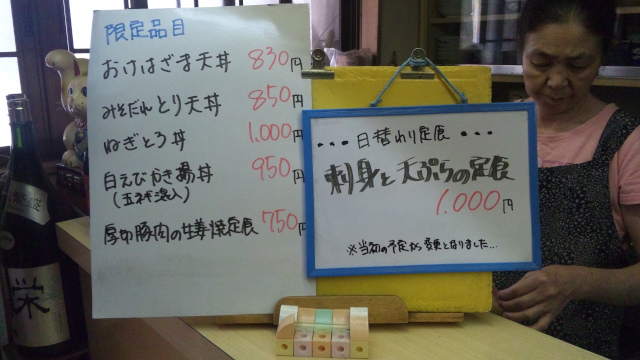 限定品目
おけはざま天丼 830円
みそだれとり天丼 850円
ねぎとろ丼 1,000円
白えびかき揚丼 950円
(玉ネギ入)
厚切豚肉の生姜焼定食 750円
・・・日替わり定食・・・
刺身と天ぷらの定食
1,000円
※当初の予定から変更となりました...
栄